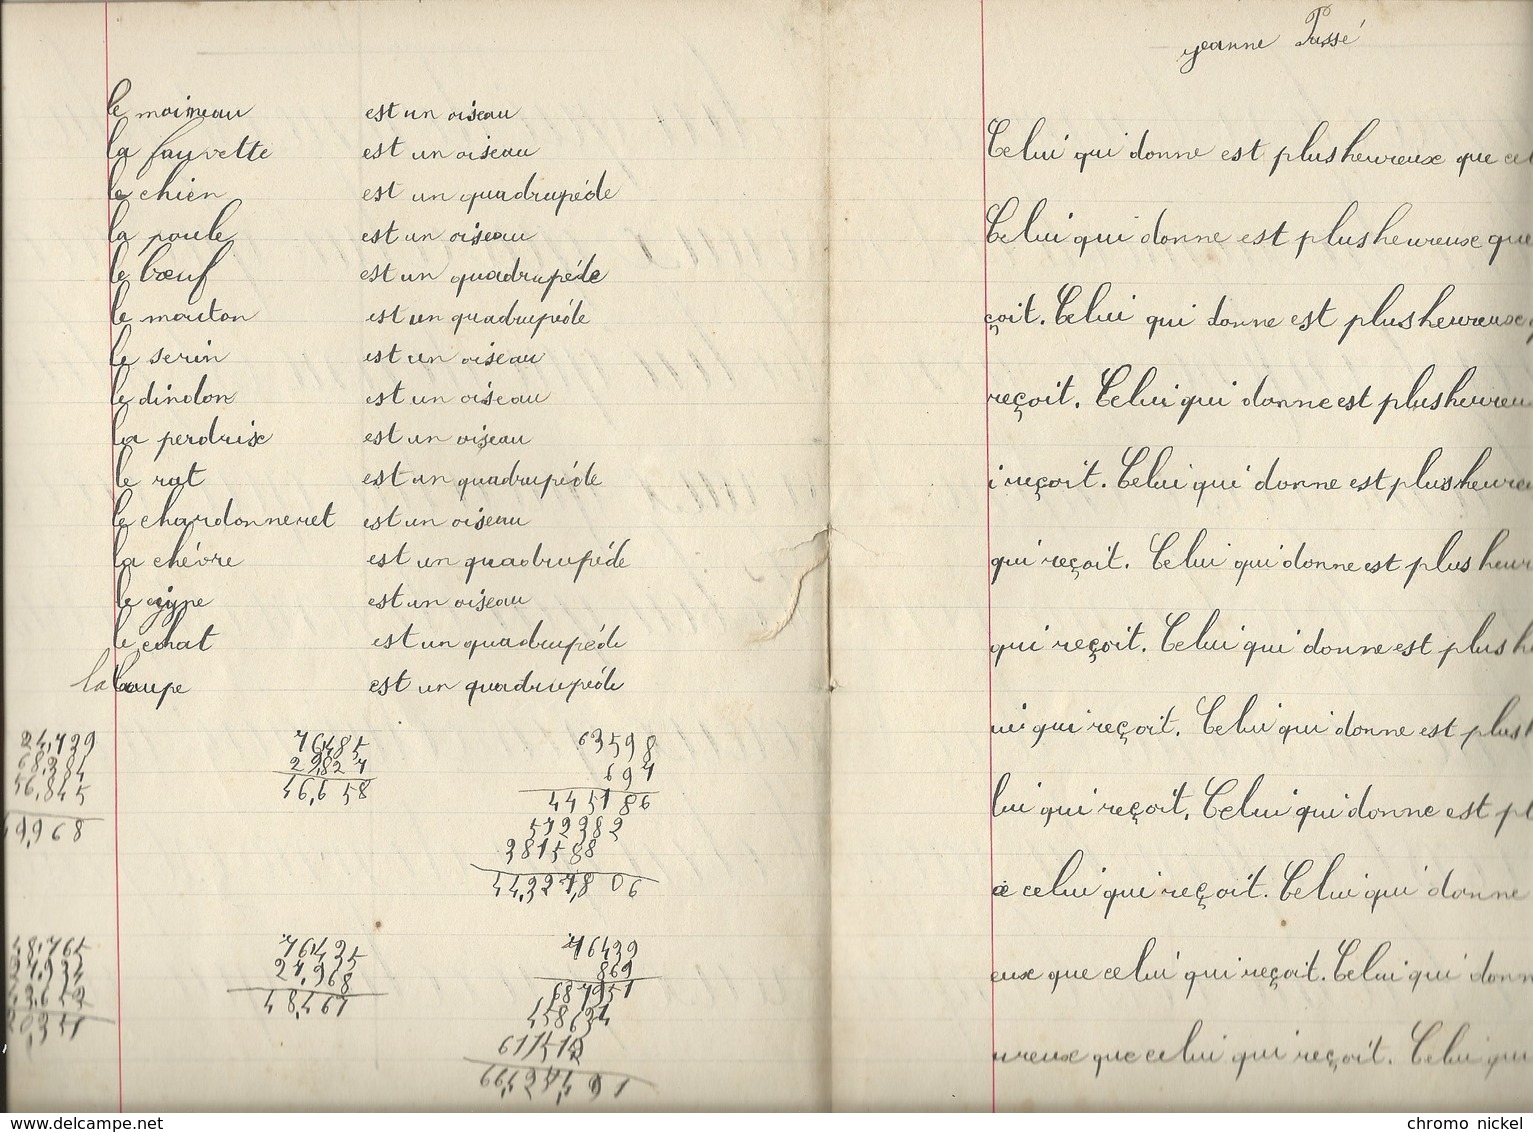 le moineau est un oiseau
la fauvette est un oiseau
le chien est un quadrupéde
la poule est un oiseau
le bœuf est un quadrupéde
le mouton est un quadrupéde
le serin est un oiseau
le dindon est un oiseau
la perdrix est un oiseau
le rat est un quadrupéde
le chardonneret est un oiseau
la chévre est un quadrupéde
le cygne est un oiseau
le chat est un quadrupéde
la est un quadrupéde
24,739 76485 63598
68,384 29,827 697
56,845 46,658 445186
9,968 572382
381588
44,327,806
48,765 76,435 76439
27,968 869
48,467 687951
458634
611512
66,425,491
Jeanne Passé
Celui qui donne est plus heureux que cel
Celui qui donne est plus heureux que
çoit. Celui qui donne est plus heureux
reçoit. Celui qui donne est plus heureu
i reçoit. Celui qui donne est plus heureu
qui reçoit. Celui qui donne est plus heur
qui reçoit. Celui qui donne est plus h
ui qui reçoit. Celui qui donne est plus
lui qui reçoit. Celui qui donne est pl
celui qui reçoit. Celui qui donne
eux que celui qui reçoit. Celui qui donn
ureux que celui qui reçoit. Celui qui
www.delcampe.net chromo nickel